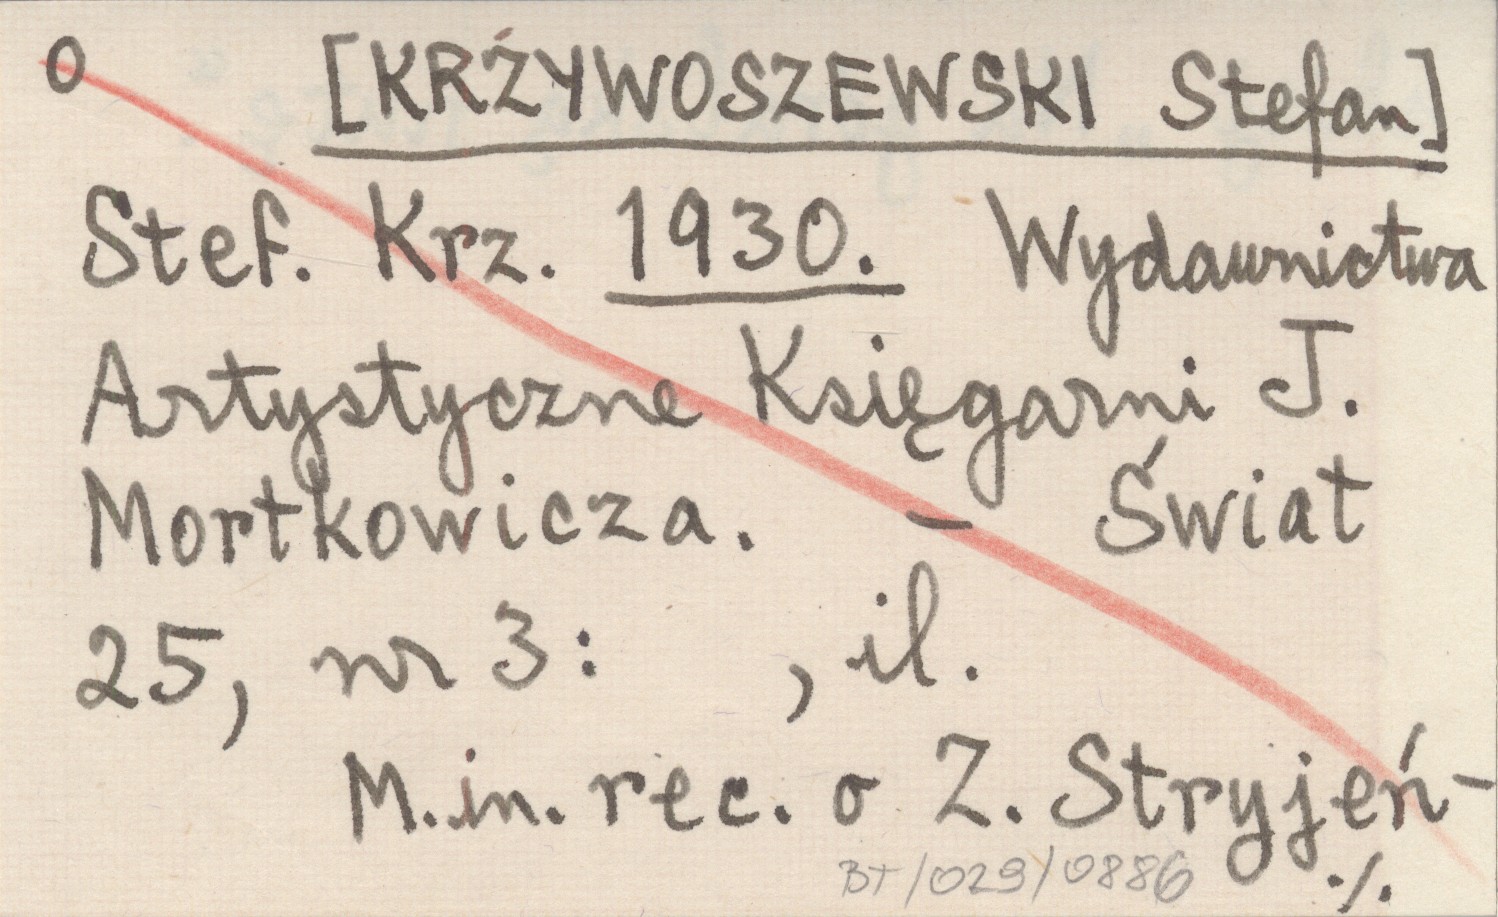 o [KRŻYWOSZEWSKI Stefan]
Stef. Krz. 1930. Wydawnictwa
Artystyczne Księgarni J.
Mortkowicza. – Świat
25, nr 3: , il.
M.in. rec. o Z. Stryjeń-
./.
BT/029/0886